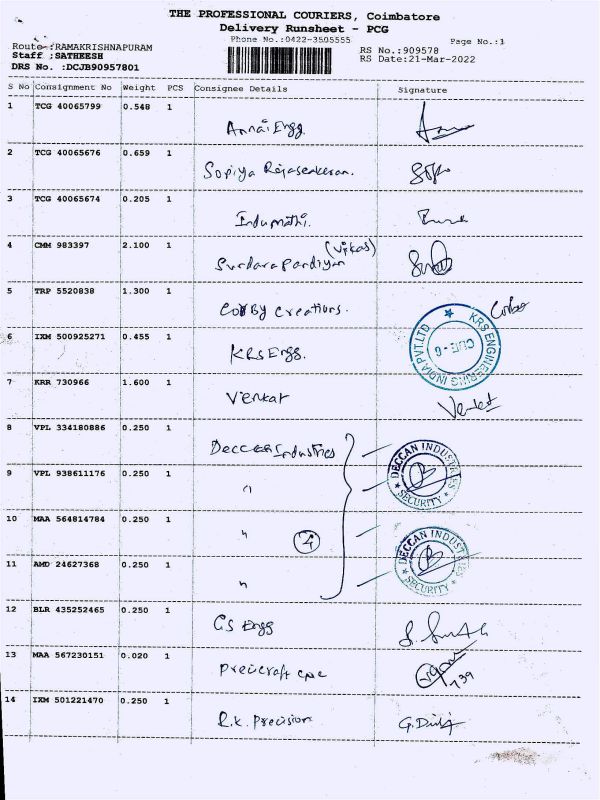 THE PROFESSIONAL COURIERS, Coimbatore
Delivery Runsheet - PCG
Phone No.:0422-3505555
Page No.:1
Route :RAMAKRISHNAPURAM
Staff :SATHEESH
DRS No. :DCJB90957801
RS No.:909578
RS Date:21-Mar-2022
S No Consignment No Weight PCS Consignee Details Signature
1 TCG 40065799 0.548 1
Annai Engg.
2 TCG 40065676 0.659 1
Sopiya Rajasekeran.
3 TCG 40065674 0.205 1
Indumathi.
4 CMM 983397 2.100 1
(Vikas)
Sundara Pandiyan
5 TRP 5520838 1.300 1
Corby Creations. Corby
6 IXM 500925271 0.455 1
KRS Engg. KRS ENGINEERING INDIA PVT.LTD CBE-6
7 KRR 730966 1.600 1
Venkat Venkat
8 VPL 334180886 0.250 1
Deccan Industries DECCAN INDUSTRIES SECURITY
9 VPL 938611176 0.250 1
"
10 MAA 564814784 0.250 1
" 4 DECCAN INDUSTRIES SECURITY
11 AMD 24627368 0.250 1
"
12 BLR 435252465 0.250 1
GS Engg
13 MAA 567230151 0.020 1
Precicraft cnc 739
14 IXM 501221470 0.250 1
R.K. Precision